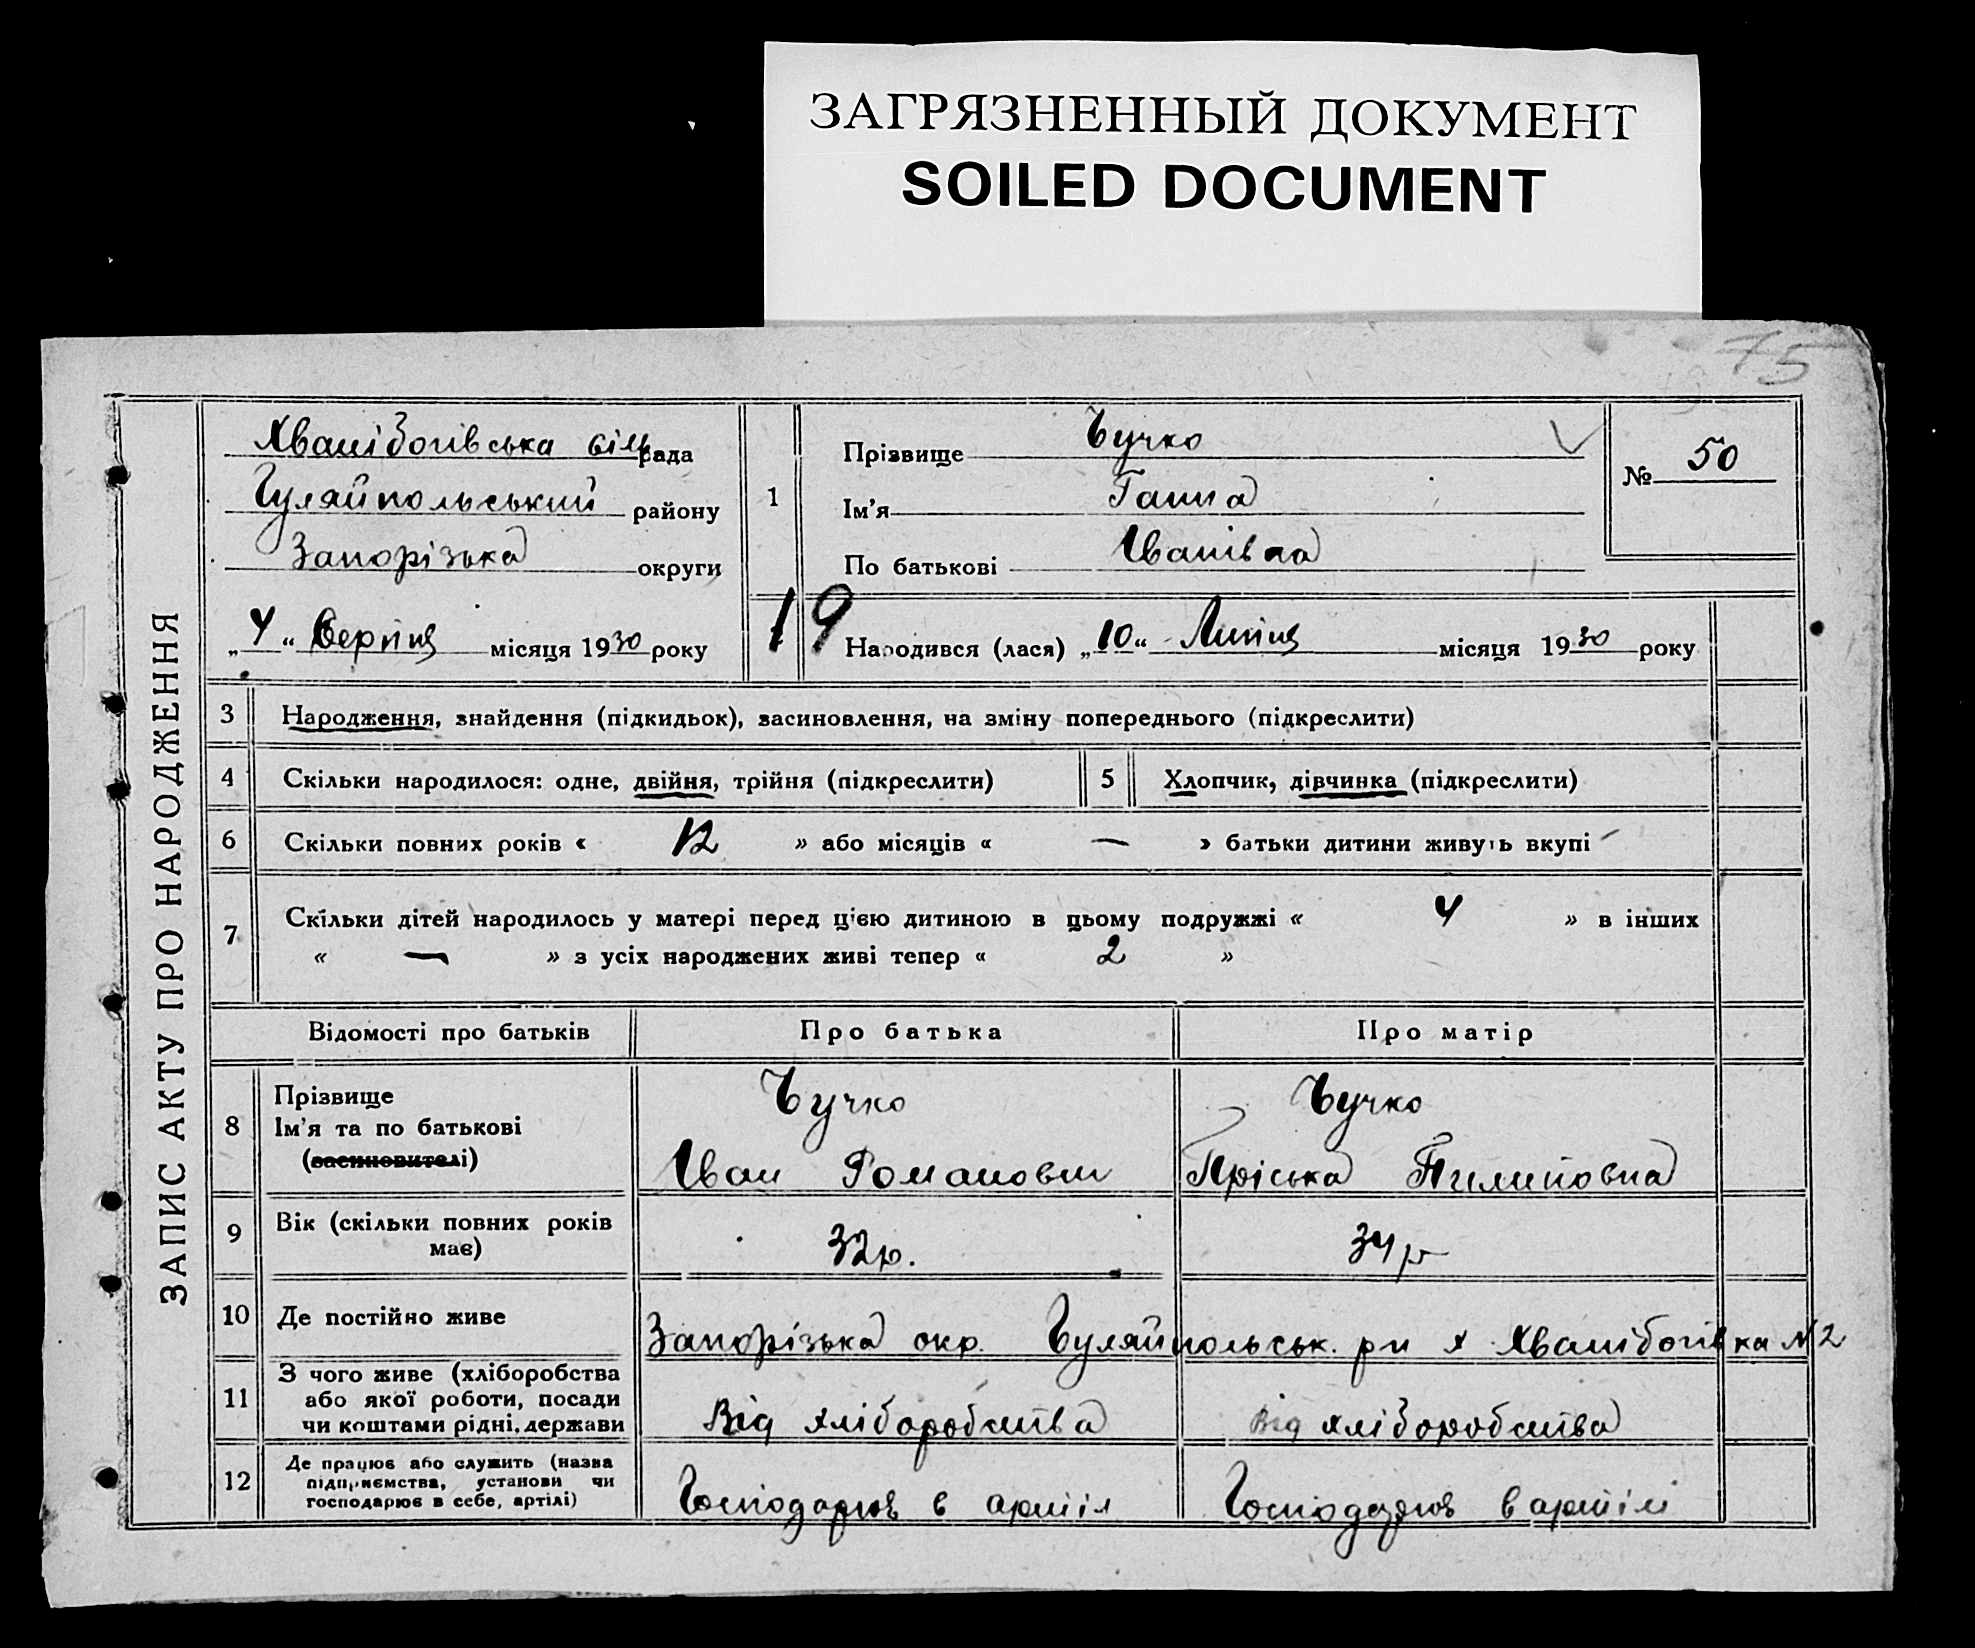 ЗАГРЯЗНЕННЫЙ ДОКУМЕНТ
SOILED DOCUMENT
75
ЗАПИС АКТУ ПРО НАРОДЖЕННЯ
Хвалібогівська сіль рада
Гуляйпольський району
Запорізька округи
„4“ Серпня місяця 1930 року
1
Прізвище Бучко
Ім'я Ганна
По батькові Іванівна
№ 50
19 Народився (лася) „10“ Липня місяця 1930 року
3 Народження, знайдення (підкидьок), засиновлення, на зміну попереднього (підкреслити)
4 Скільки народилося: одне, двійня, трійня (підкреслити) 5 Хлопчик, дівчинка (підкреслити)
6 Скільки повних років « 12 » або місяців « — » батьки дитини живуть вкупі
7 Скільки дітей народилось у матері перед цією дитиною в цьому подружжі « 4 » в інших
« — » з усіх народжених живі тепер « 2 »
Відомості про батьків Про батька Про матір
8 Прізвище Бучко Бучко
Ім'я та по батькові
(засиновителі) Іван Романович Пріська Пилиповна
9 Вік (скільки повних років має) 32р. 34р
10 Де постійно живе Запорізька окр. Гуляйпольськ. рн х Хвалібогівка №2
11 З чого живе (хліборобства
або якої роботи, посади
чи коштами рідні, держави Від хліборобства Від хліборобства
12 Де працює або служить (назва
підприємства, установи чи
господарює в себе, артілі) Господарює в артіл Господарює в артілі